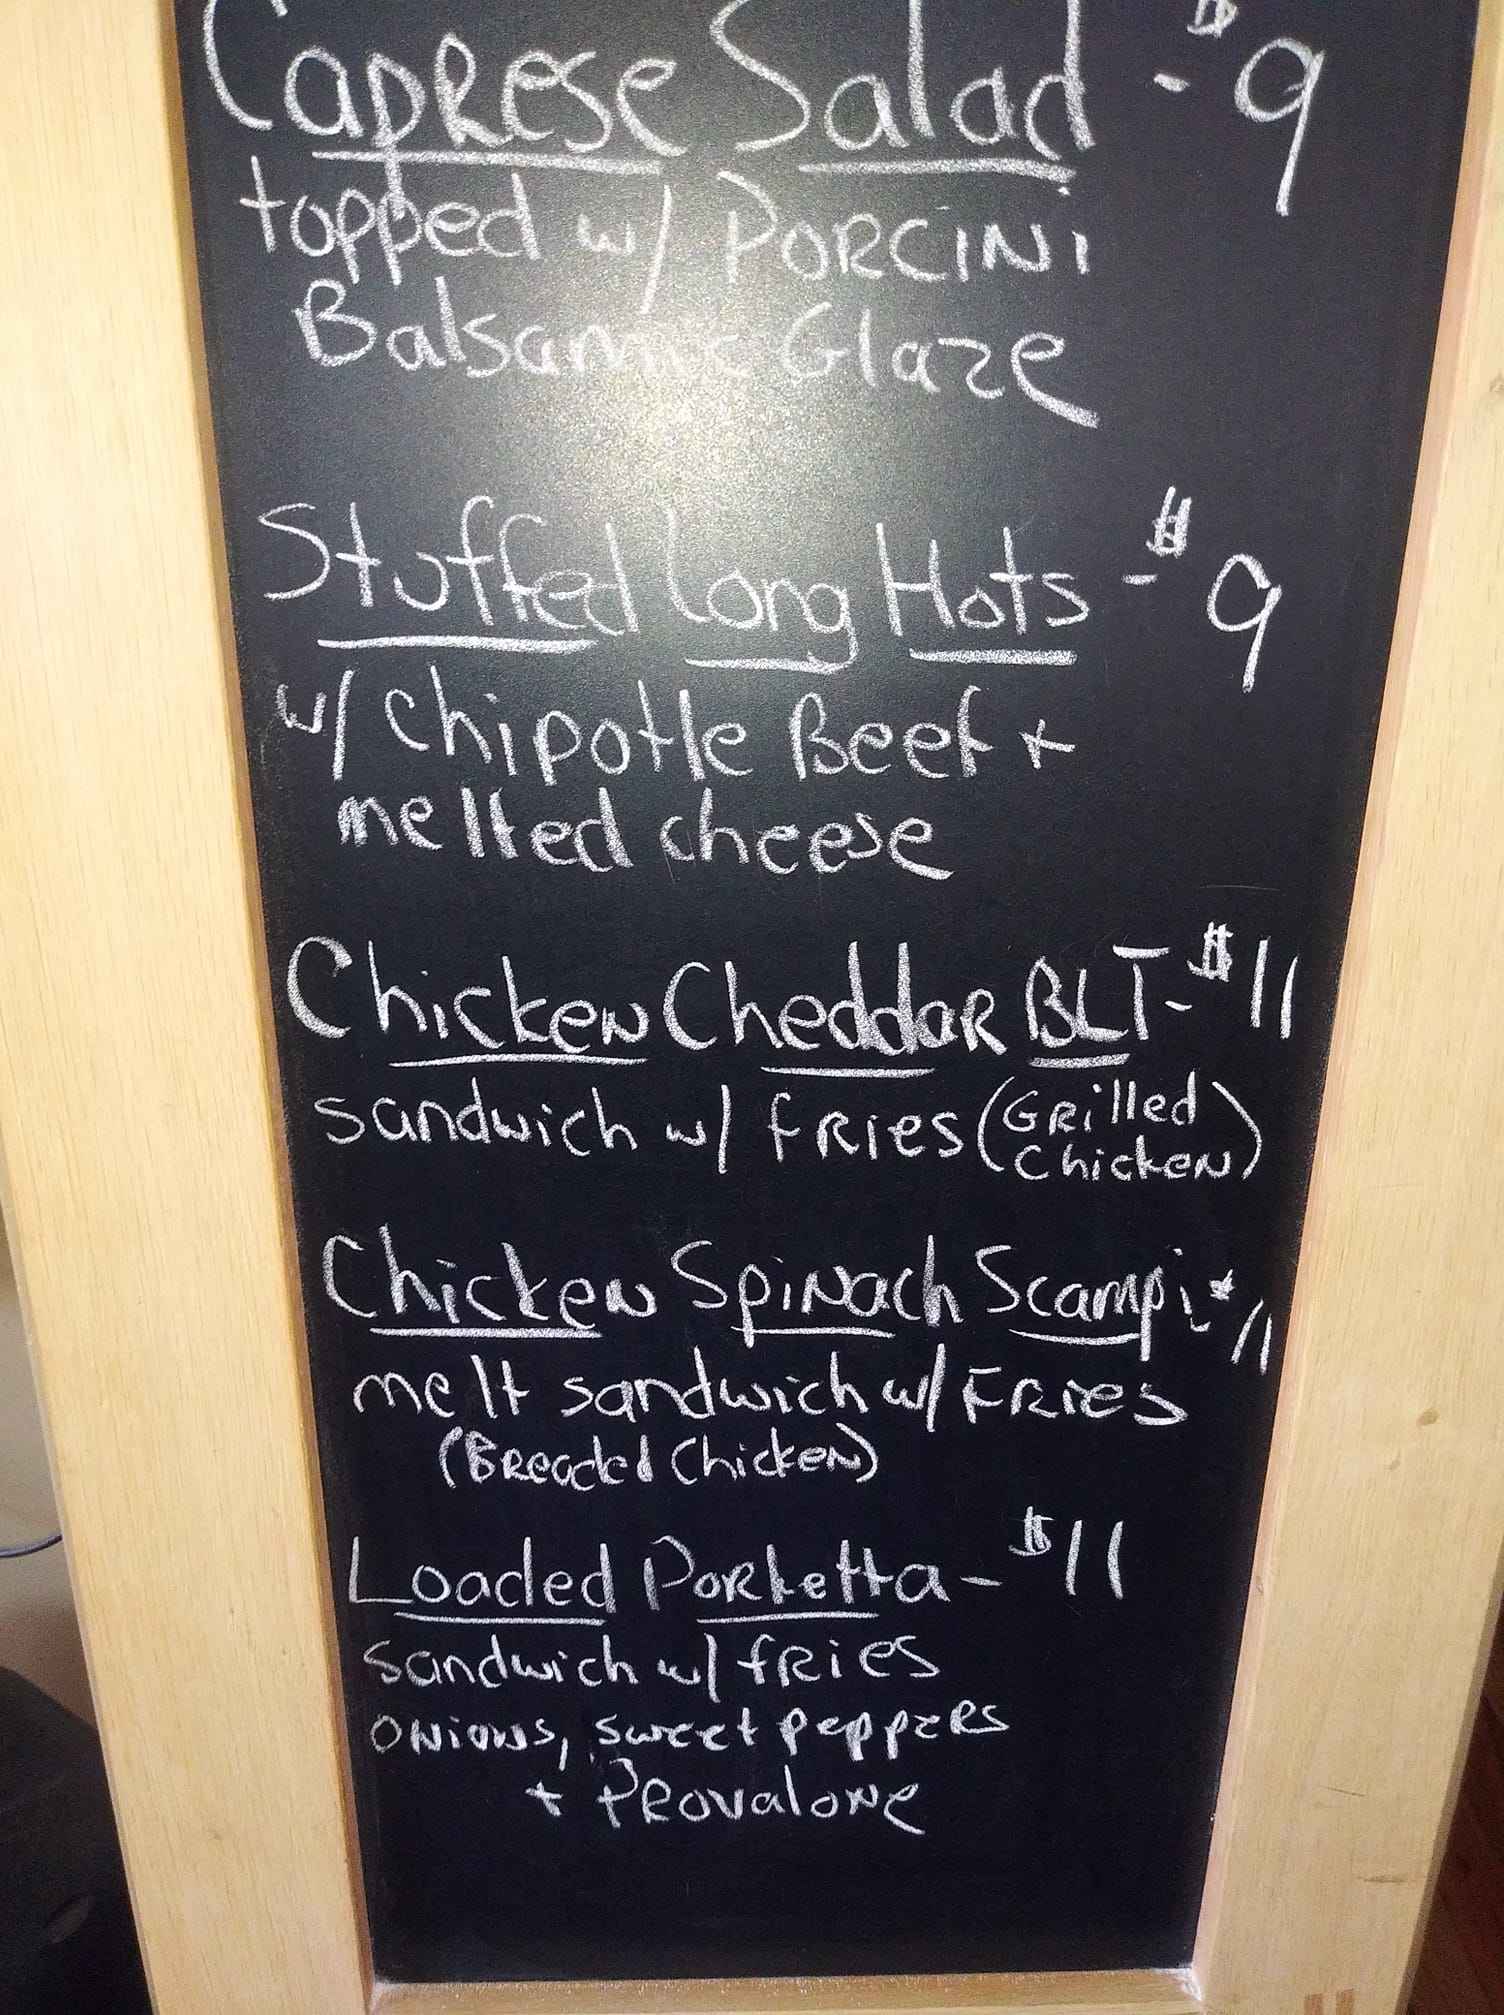 Caprese Salad - $9
topped w/ Porcini
Balsamic Glaze
Stuffed Long Hots - $9
w/ Chipotle Beef +
melted cheese
Chicken Cheddar BLT - $11
sandwich w/ fries (Grilled Chicken)
Chicken Spinach Scampi - $11
melt sandwich w/ Fries
(Breaded Chicken)
Loaded Porketta - $11
sandwich w/ fries
onions, sweet peppers
+ Provalone